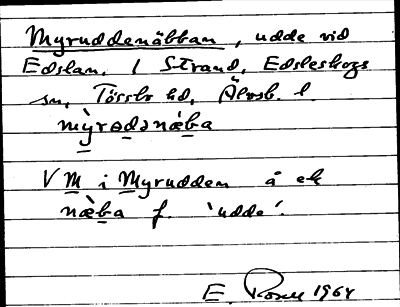 Myruddenäbban, udde vid
Edslan, 1 Strand, Edsleskogs
sn, Tössbo hd, Älvsb. l.
my̆rədənæ̀ba
V M i Myrudden å ek
næ̀ba f. 'udde'.
E. 1964